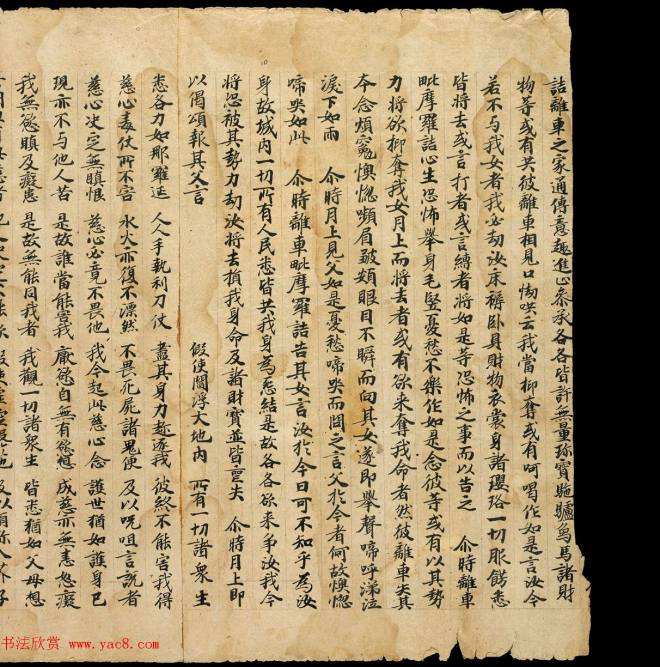 詣離車之家通傳意趣進止叅承各各皆許無量珎寶駞驢鳥馬諸財
物等或有共彼離車相見口唤云我當抑奪或有呵喝作如是言汝今
若不与我女者我必劫汝床褥卧具財物衣裳身諸瓔珞一切服餙悉
皆將去或言打者或言縛者將如是等恐怖之事而以告之 尒時離車
毗摩羅詰心生恐怖舉身毛竪憂愁不樂作如是念彼等或有以其勢
力將欲抑奪我女月上而將去者或有欲来奪我命者然彼離車失其
本念煩冤懊惱嚬眉皺頞眼目不瞬而向其女遂即舉聲啼呼涕泣
淚下如雨 尒時月上見父如是憂愁啼哭而問之言父於今者何故懊惱
啼哭如此 尒時離車毗摩羅詰告其女言汝於今日可不知乎為汝
身故城内一切所有人民悉皆共我身為怨結是故各各欲来爭汝我今
將恐被其勢力劫汝將去損我身命及諸財寶並皆喪失 尒時月上即
以偈頌報其父言 假使閻浮大地内 所有一切諸衆生
悉各力如那羅延 人人手執利刀仗 盡其身力趂逐我 彼終不能害我得
慈心毒仗所不害 水火亦復不漂然 不畏死屍諸鬼使 及以呪咀言説者
慈心决定無瞋恨 慈心必竟不畏他 我今起此慈心念 護世猶如護身己
現亦不与他人苦 是故誰當能害我 厭慾自無有慾想 成慈亦無恚怒癡
我無慾瞋及癡患 是故無能同我者 我觀一切諸衆生 皆悉猶如父母想
书法欣赏 www.yac8.com